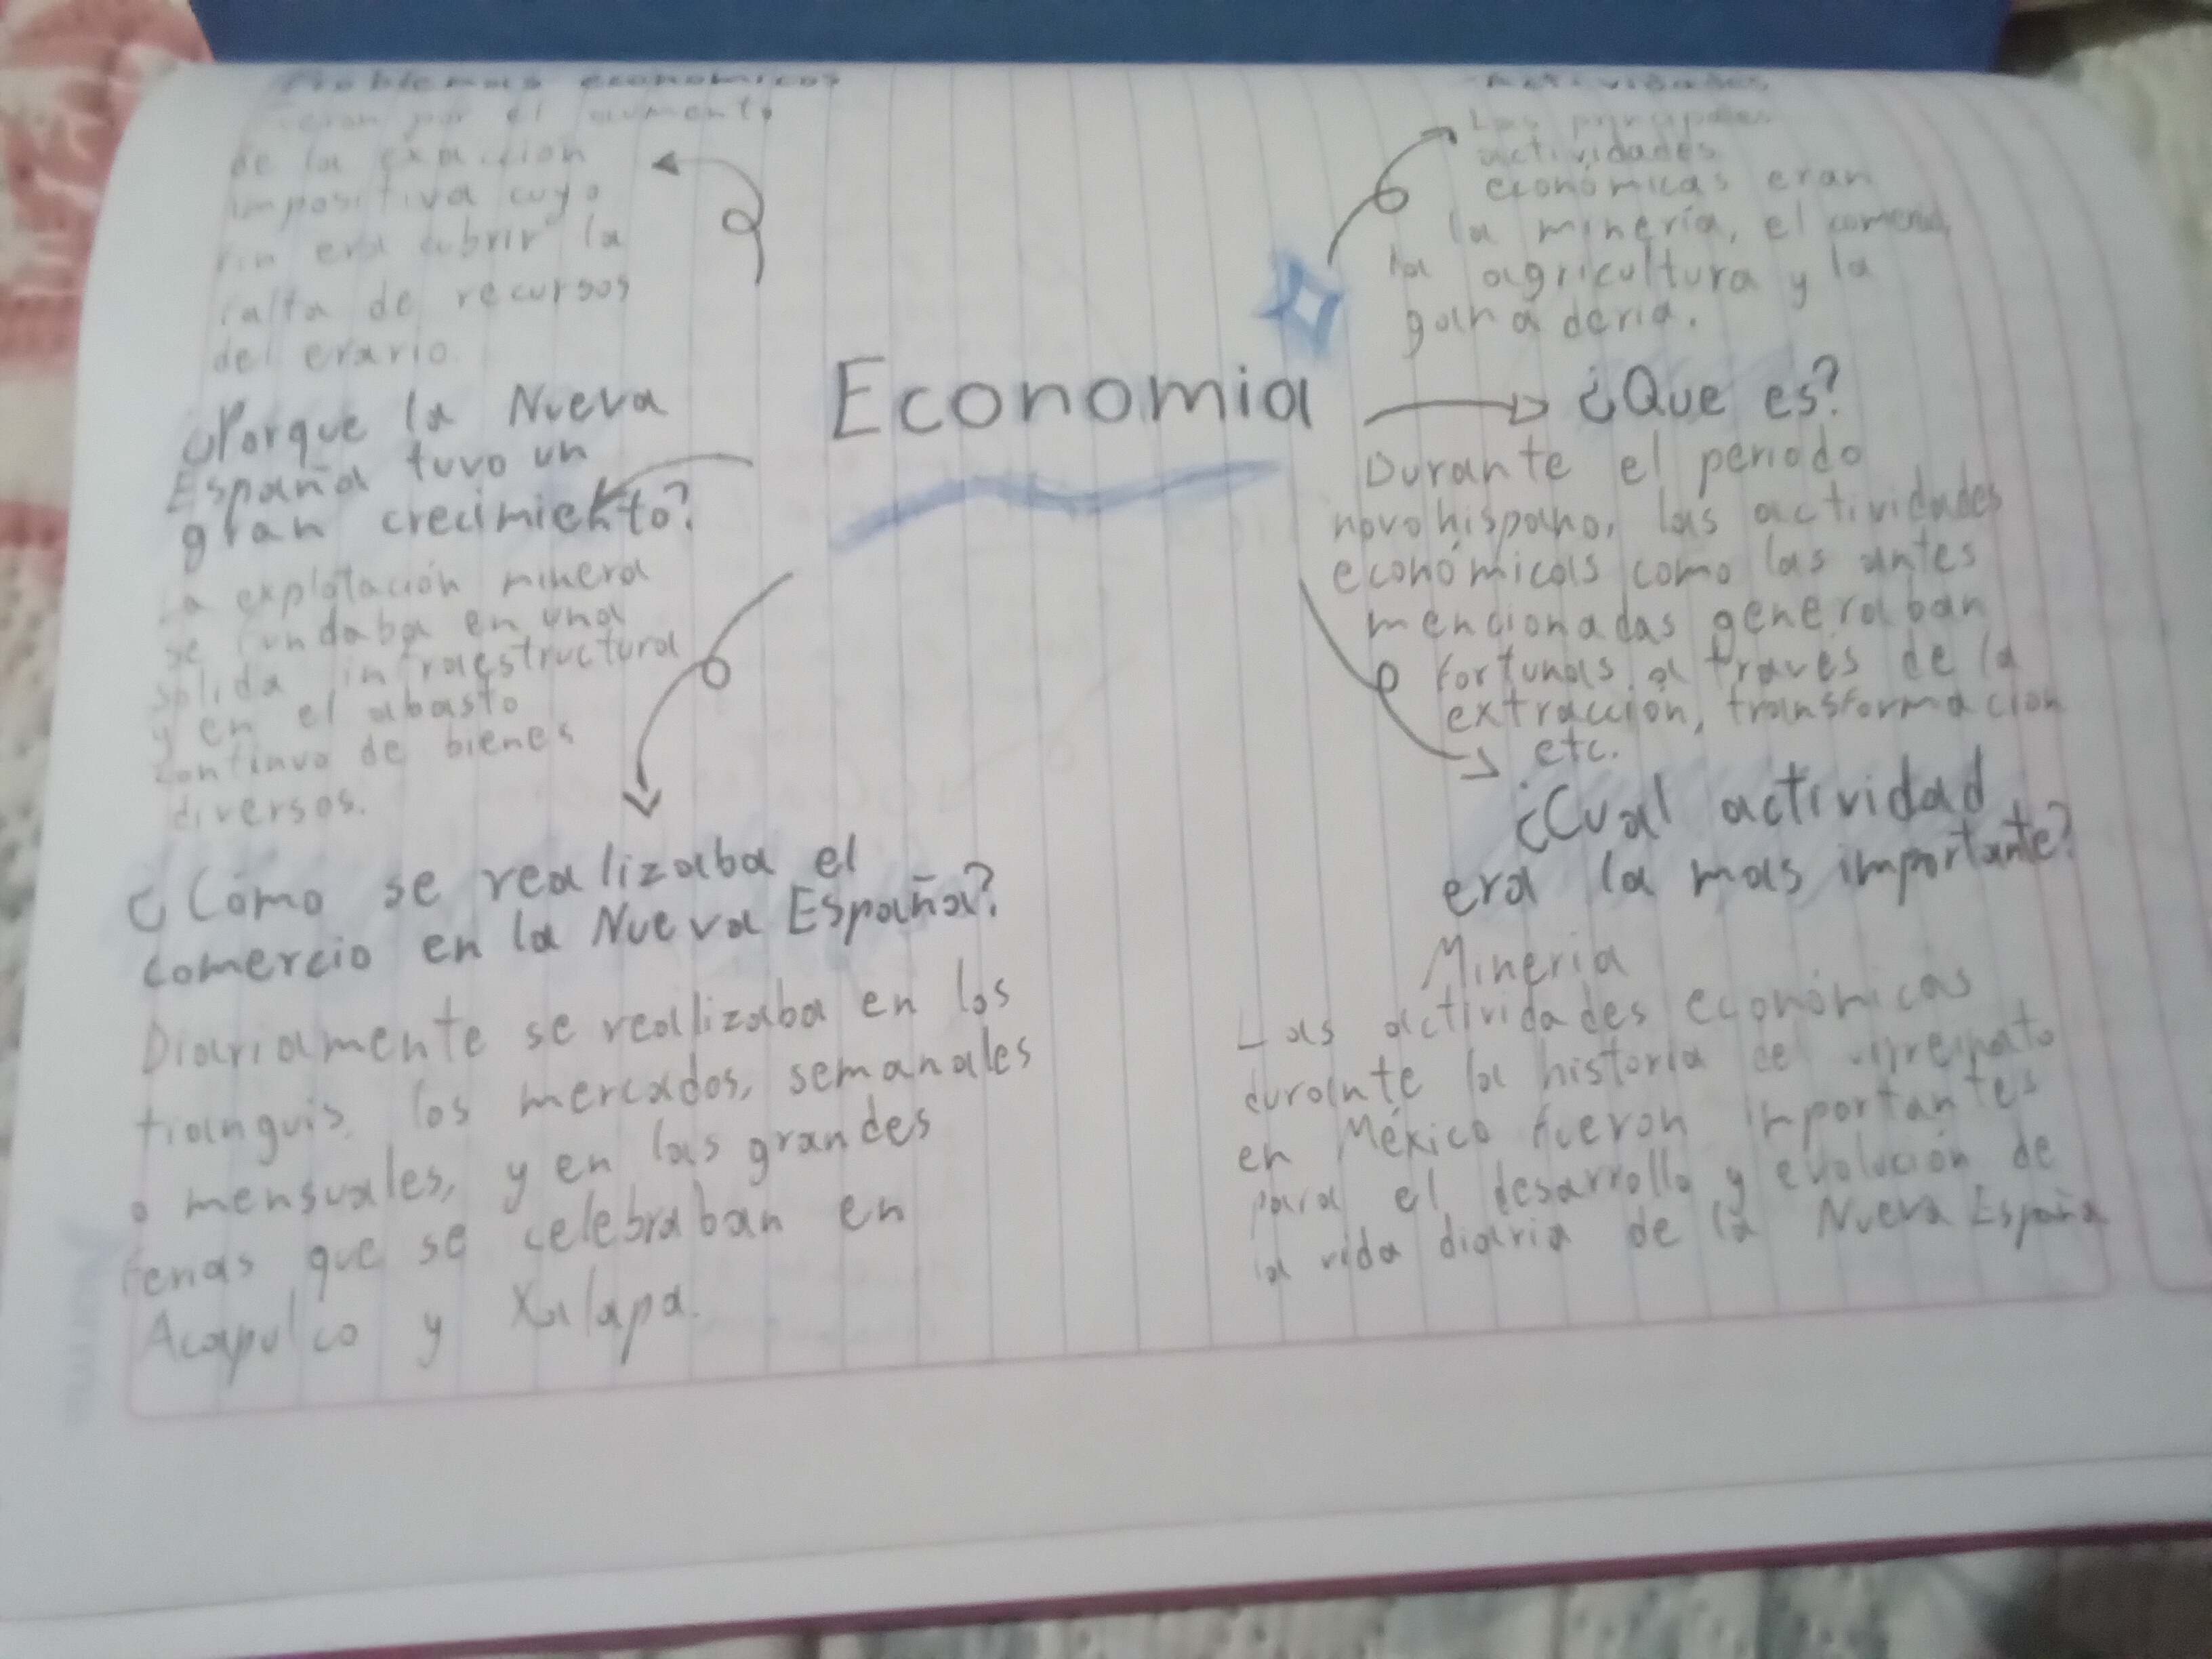 Problemas económicos
eron por el aumento
de la exacción
impositiva cuyo
fin era cubrir la
falta de recursos
del erario.
Actividades
Las principales
actividades
económicas eran
la minería, el comercio,
la agricultura y la
ganadería.
Economia
¿Porque la Nueva
España tuvo un
gran crecimiento?
La explotación minera
se fundaba en una
solida infraestructura
y en el abasto
continuo de bienes
diversos.
¿Que es?
Durante el periodo
novohispano, las actividades
económicas como las antes
mencionadas generaban
fortunas a traves de la
extracción, transformación
etc.
¿Como se realizaba el
comercio en la Nueva España?
Diariamente se realizaba en los
tianguis, los mercados, semanales
o mensuales, y en las grandes
ferias que se celebraban en
Acapulco y Xalapa.
¿Cual actividad
era la mas importante?
Mineria
Las actividades económicas
durante la historia del virreinato
en México fueron importantes
para el desarrollo y evolución de
la vida diaria de la Nueva España